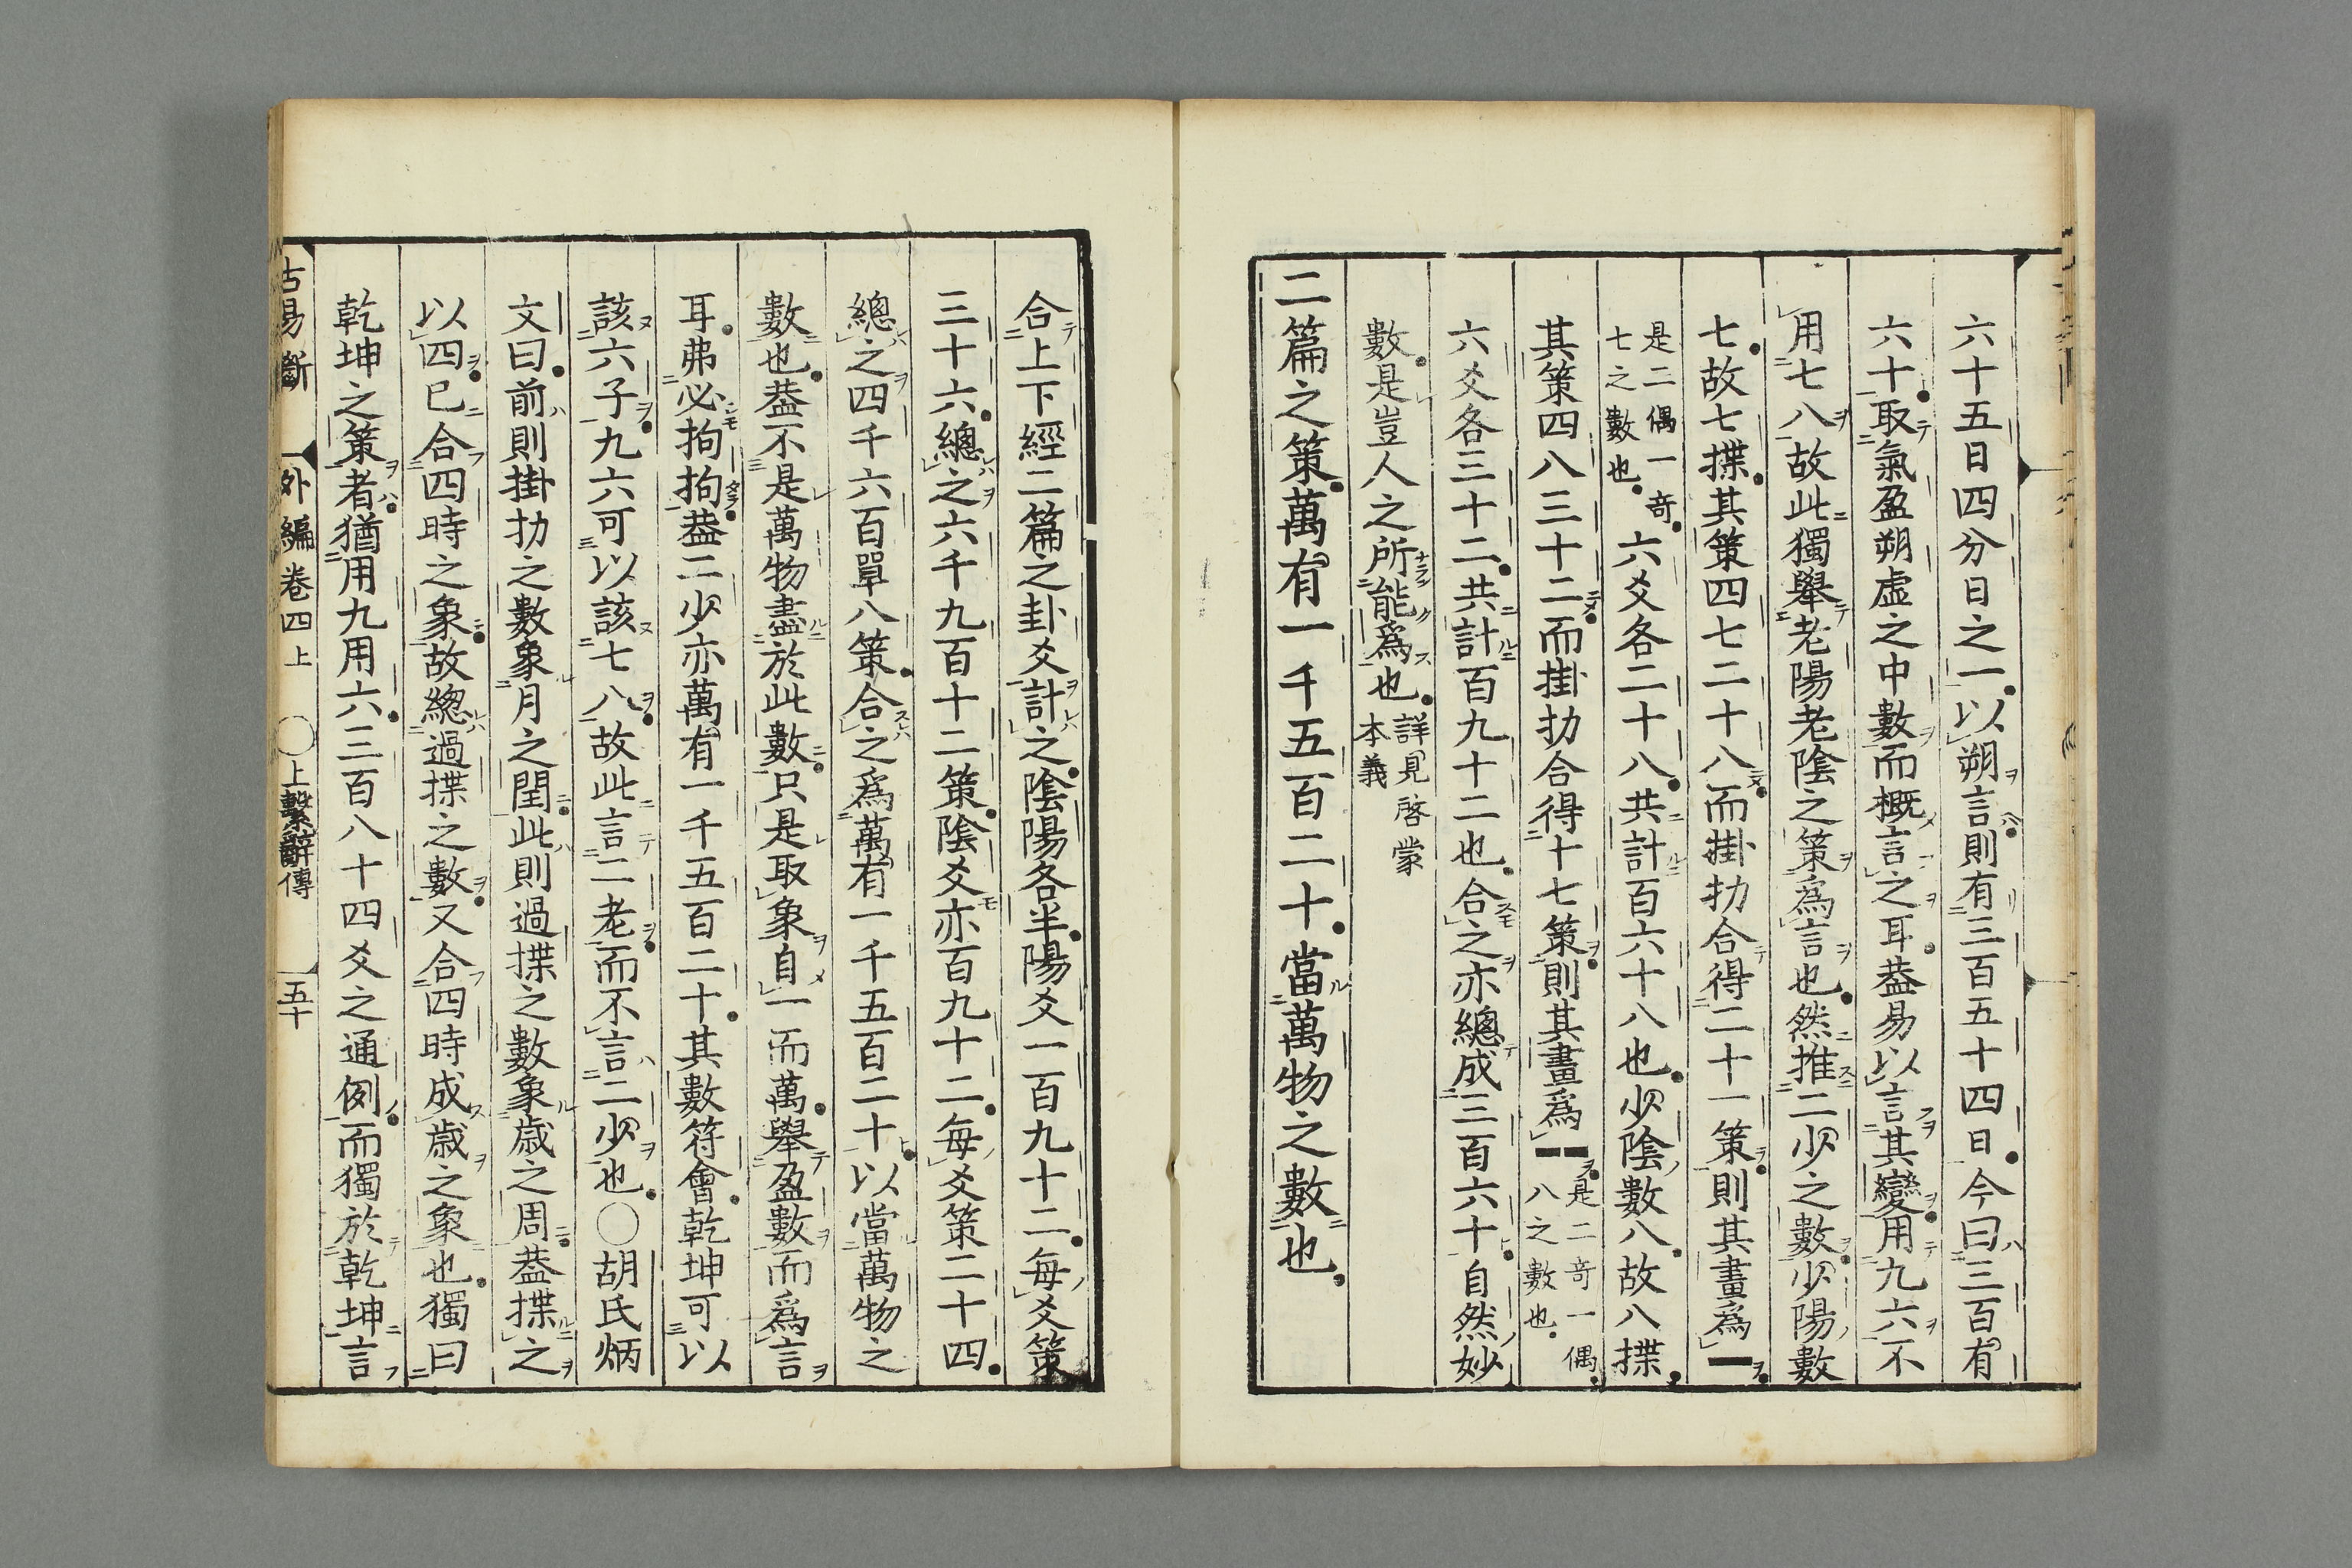 六十五日四分日之一以朔言則有三百五十四日今曰三百有
六十取氣盈朔虛之中數而概言之耳葢易以言其變用九六不
用七八故此獨舉老陽老陰之策為言也然推二少之數少陽數
七故七揲其策四七二十八而掛扐合得二十一策則其畫爲⚊
是二偶一奇七之數也六爻各二十八共計百六十八也少陰數八故八揲
其策四八三十二而掛扐合得十七策則其畫爲⚋是二奇一偶八之數也
六爻各三十二共計百九十二也合之亦總成三百六十自然妙
數是豈人之所能爲也詳見啓蒙本義
二篇之策萬有一千五百二十當萬物之數也
合上下經二篇之卦爻計之陰陽各半陽爻一百九十二每爻策
三十六總之六千九百十二策陰爻亦百九十二每爻策二十四
總之四千六百單八策合之爲萬有一千五百二十以當萬物之
數也葢不是萬物盡於此數只是取象自一而萬舉盈數而爲言
耳弗必拘拘葢二少亦萬有一千五百二十其數符會乾坤可以
該六子九六可以該七八故此言二老而不言二少也〇胡氏炳
文曰前則掛扐之數象月之閏此則過揲之數象歲之周葢揲之
以四已合四時之象故總過揲之數又合四時成歲之象也獨曰
乾坤之策者猶用九用六三百八十四爻之通例而獨於乾坤言
古易斷 外編卷四上 〇上繫辭傳 五十